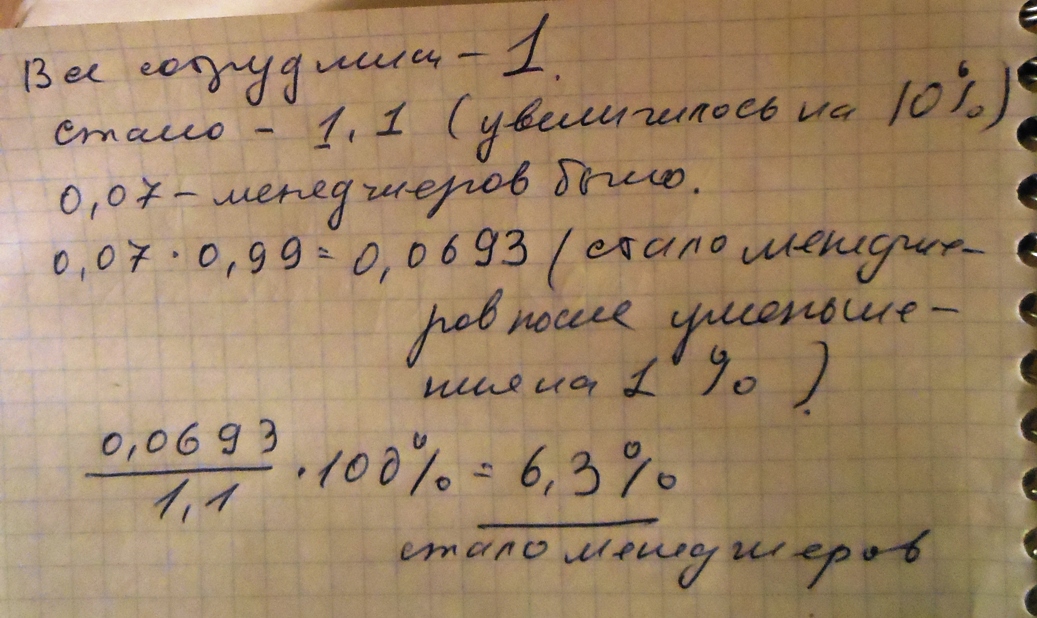 Все сотрудники - 1.
стало - 1,1 (увеличилось на 10%)
0,07 - менеджеров было.
0,07 · 0,99 = 0,0693 (стало менедже-
ров после уменьше-
ния на 1 %)
0,0693
1,1
· 100% = 6,3%
стало менеджеров